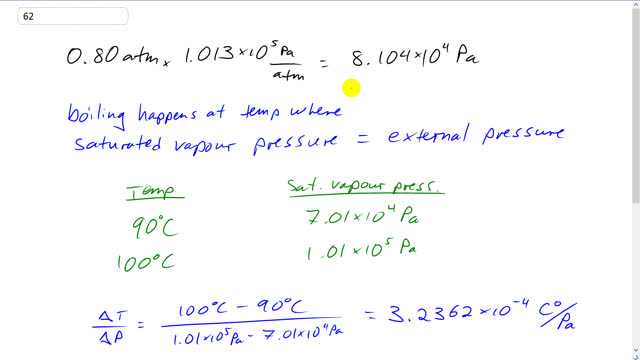 62
0.80 atm × 1.013×10⁵ Pa/atm = 8.104×10⁴ Pa
boiling happens at temp where
saturated vapour pressure = external pressure
Temp Sat. vapour press.
90°C 7.01×10⁴ Pa
100°C 1.01×10⁵ Pa
ΔT/ΔP = (100°C − 90°C)/(1.01×10⁵Pa − 7.01×10⁴Pa) = 3.2362×10⁻⁴ C°/Pa